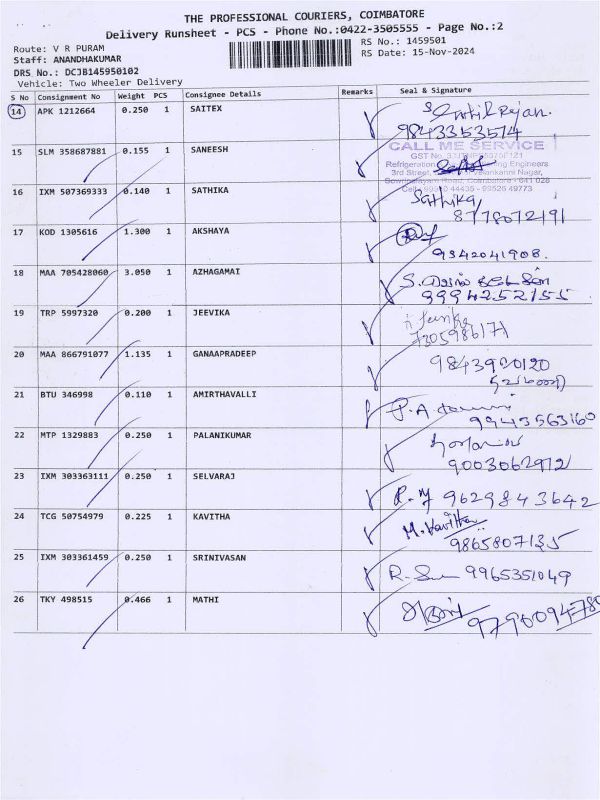 THE PROFESSIONAL COURIERS, COIMBATORE
Delivery Runsheet - PCS - Phone No.:0422-3505555 - Page No.:2
Route: V R PURAM
RS No.: 1459501
Staff: ANANDHAKUMAR
RS Date: 15-Nov-2024
DRS No.: DCJB145950102
Vehicle: Two Wheeler Delivery
S No Consignment No Weight PCS Consignee Details Remarks Seal & Signature
14 APK 1212664 0.250 1 SAITEX
9843353574
CALL ME SERVICE
15 SLM 358687881 0.155 1 SANEESH
Refrigeration Engineers
3rd Street, Nagar,
Coimbatore - 641 028
16 IXM 507369333 0.140 1 SATHIKA Sathika
8778072191
17 KOD 1305616 1.300 1 AKSHAYA
9342041908.
18 MAA 705428060 3.050 1 AZHAGAMAI
9994252155
19 TRP 5997320 0.200 1 JEEVIKA
7305986171
20 MAA 866791077 1.135 1 GANAAPRADEEP 9843920120
21 BTU 346998 0.110 1 AMIRTHAVALLI
9943563160
22 MTP 1329883 0.250 1 PALANIKUMAR
9003062912
23 IXM 303363111 0.250 1 SELVARAJ 9629843642
24 TCG 50754979 0.225 1 KAVITHA M. Kavitha
9865807135
25 IXM 303361459 0.250 1 SRINIVASAN 9965351049
26 TKY 498515 0.466 1 MATHI
9790094780